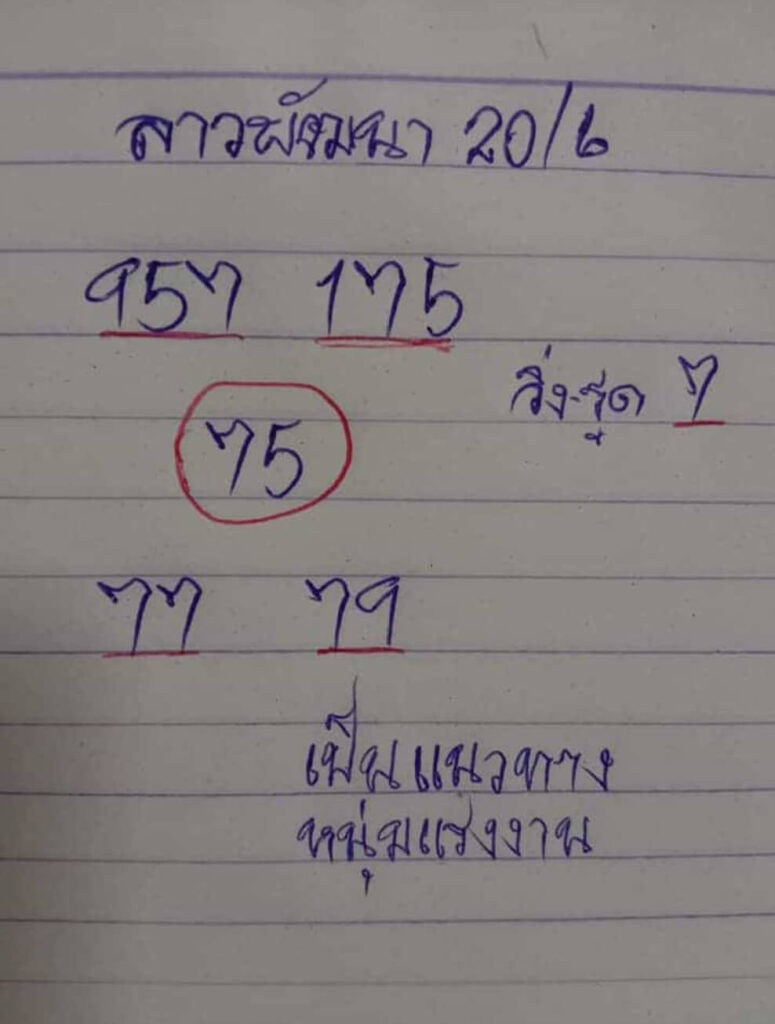 ลาวพัฒนา 20/6
957 175
วิ่ง-รูด 7
75
77 79
เป็นแนวทาง
หนุ่มแรงงาน